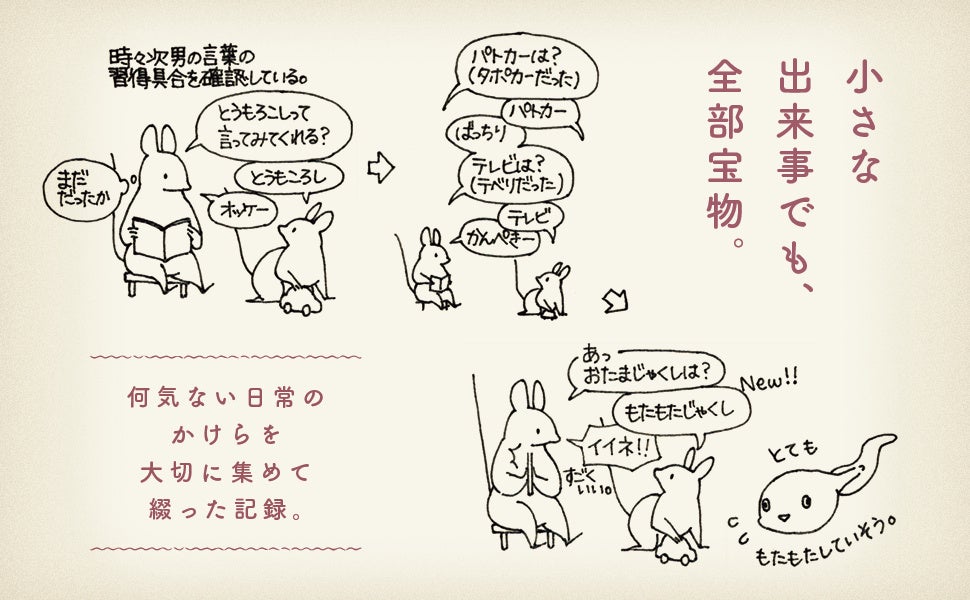 小さな
出来事でも、
全部宝物。
時々次男の言葉の
習得具合を確認している。
とうもろこしって
言ってみてくれる?
とうもころし
まだ
だったか
オッケー
パトカーは?
(タポカーだった)
パトカー
ばっちり
テレビは?
(テベリだった)
テレビ
かんぺきー
あっ
おたまじゃくしは?
New!!
もたもたじゃくし
イイネ!!
すごく
いい。
とても
もたもたしていそう。
何気ない日常の
かけらを
大切に集めて
綴った記録。